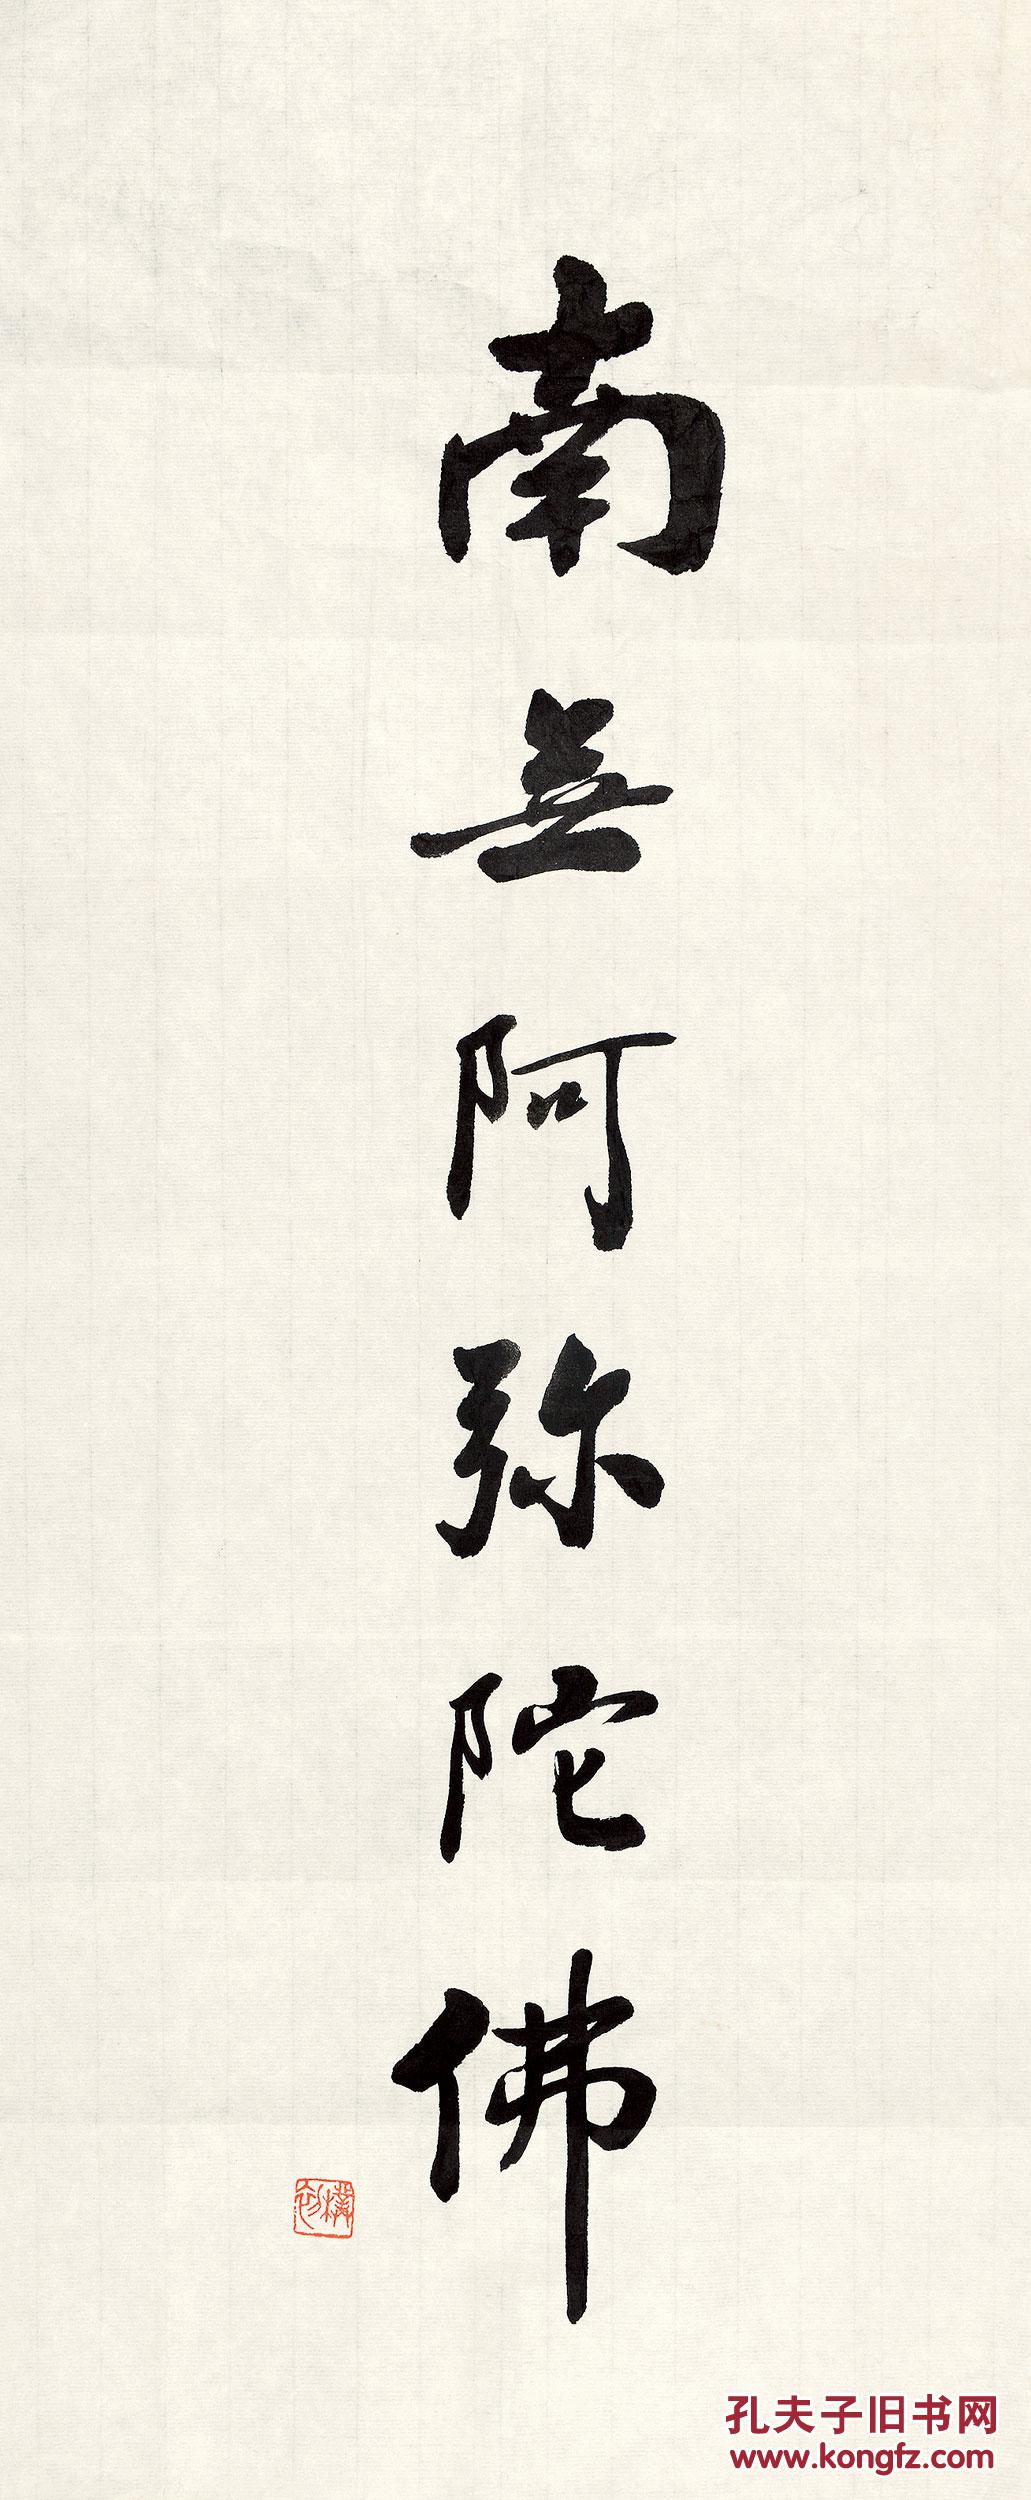 南無阿弥陀佛
朴初
孔夫子旧书网
www.kongfz.com